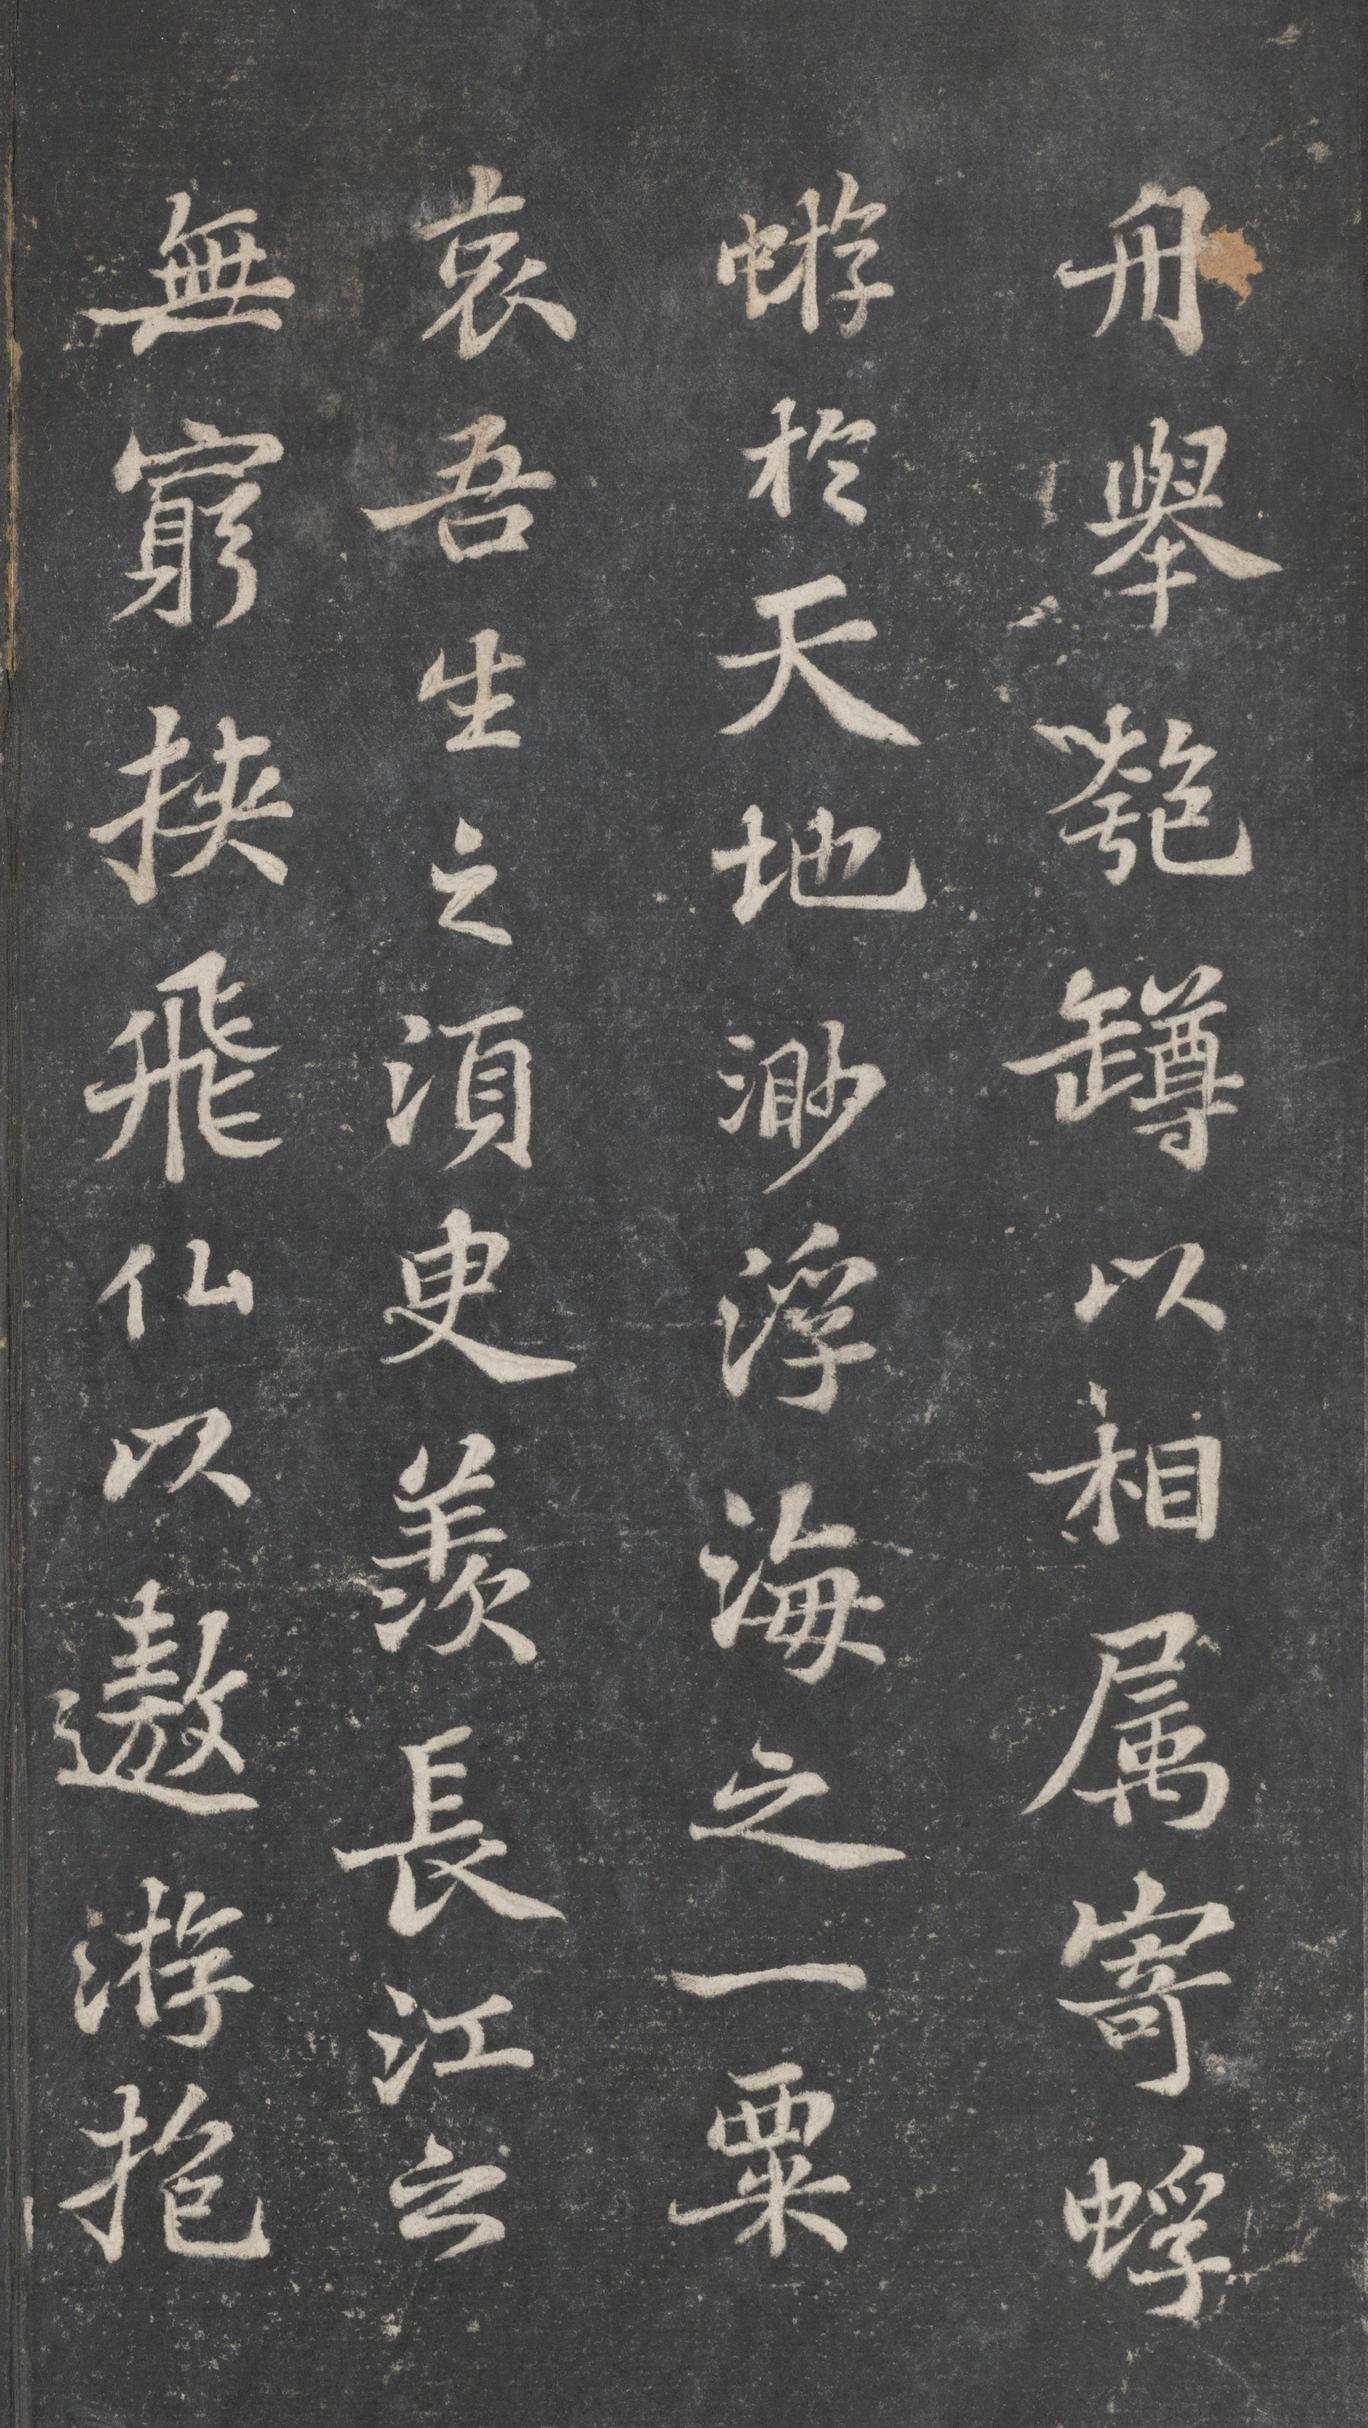 舟舉匏罇以相属寄蜉
蝣於天地渺浮海之一粟
哀吾生之湏臾羨長江之
無窮挾飛仙以遨游抱